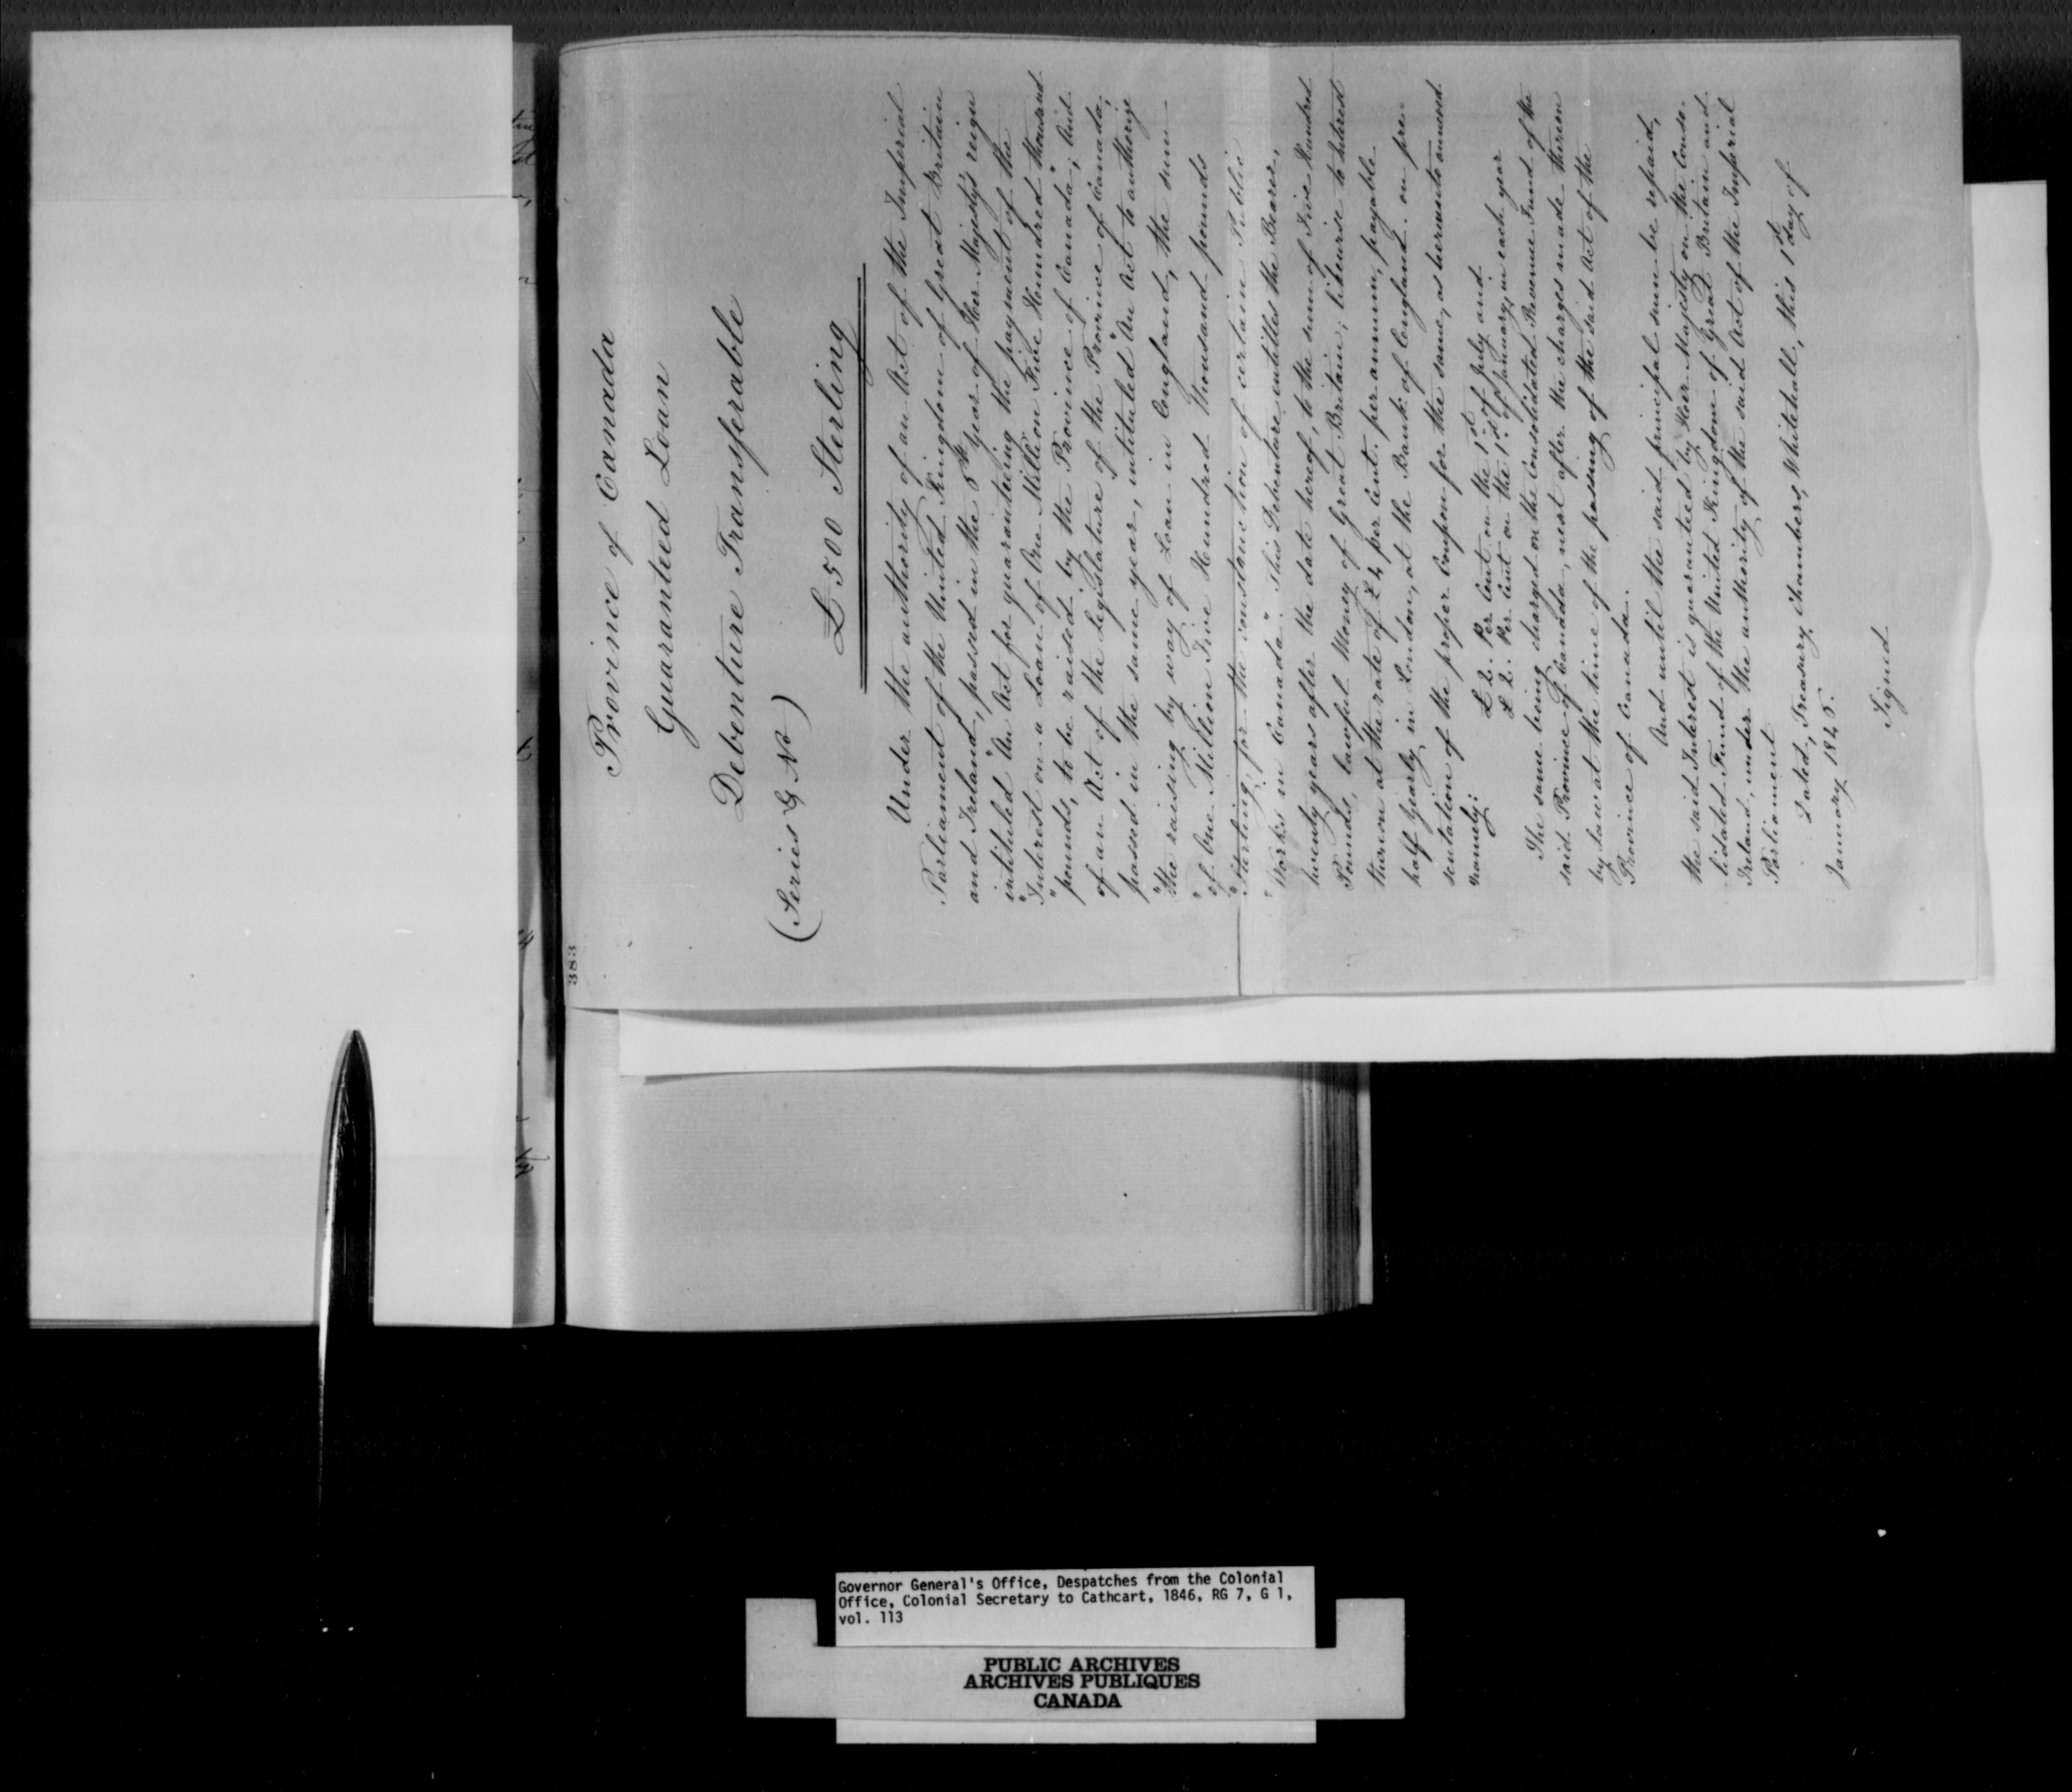 383
Province of Canada
Guaranteed Loan
Debenture Transferable
(Series & No )
£500 Sterling
Under the authority of an Act of the Imperial
Parliament of the United Kingdom of Great Britain
and Ireland, passed in the 5th Year of Her Majesty's reign
intituled "An Act for guaranteeing the payment of the
"Interest on a Loan of One Million Five Hundred thousand
"pounds, to be raised by the Province of Canada"; And
of an Act of the Legislature of the Province of Canada,
passed in the same year, intituled "An Act to authorize
"the raising by way of Loan in England, the sum
"of One Million Five Hundred thousand pounds
"Sterling, for the construction of certain Public
"Works in Canada". This Debenture entitles the Bearer,
twenty years after the date hereof, to the sum of Five Hundred
Pounds, lawful Money of Great Britain; likewise to Interest
thereon at the rate of £4 per Cent. per annum, payable
half yearly in London, at the Bank of England on pre-
sentation of the proper Coupon for the same, as hereunto annexed
namely:
£2. Per Cent on the 1st of July and
£2. Per Cent on the 1st of January, in each year
The same being charged on the Consolidated Revenue Fund of the
said Province of Canada, next after the charges made thereon
by Law at the time of the passing of the said Act of the
Province of Canada.
And until the said principal sum be repaid,
the said Interest is guaranteed by Her Majesty on the Conso-
lidated Fund of the United Kingdom of Great Britain and
Ireland, under the authority of the said Act of the Imperial
Parliament
Dated, Treasury Chambers, Whitehall, this 1st day of
January 1845.
Signed
Governor General's Office, Despatches from the Colonial
Office, Colonial Secretary to Cathcart, 1846, RG 7, G 1,
vol. 113
PUBLIC ARCHIVES
ARCHIVES PUBLIQUES
CANADA